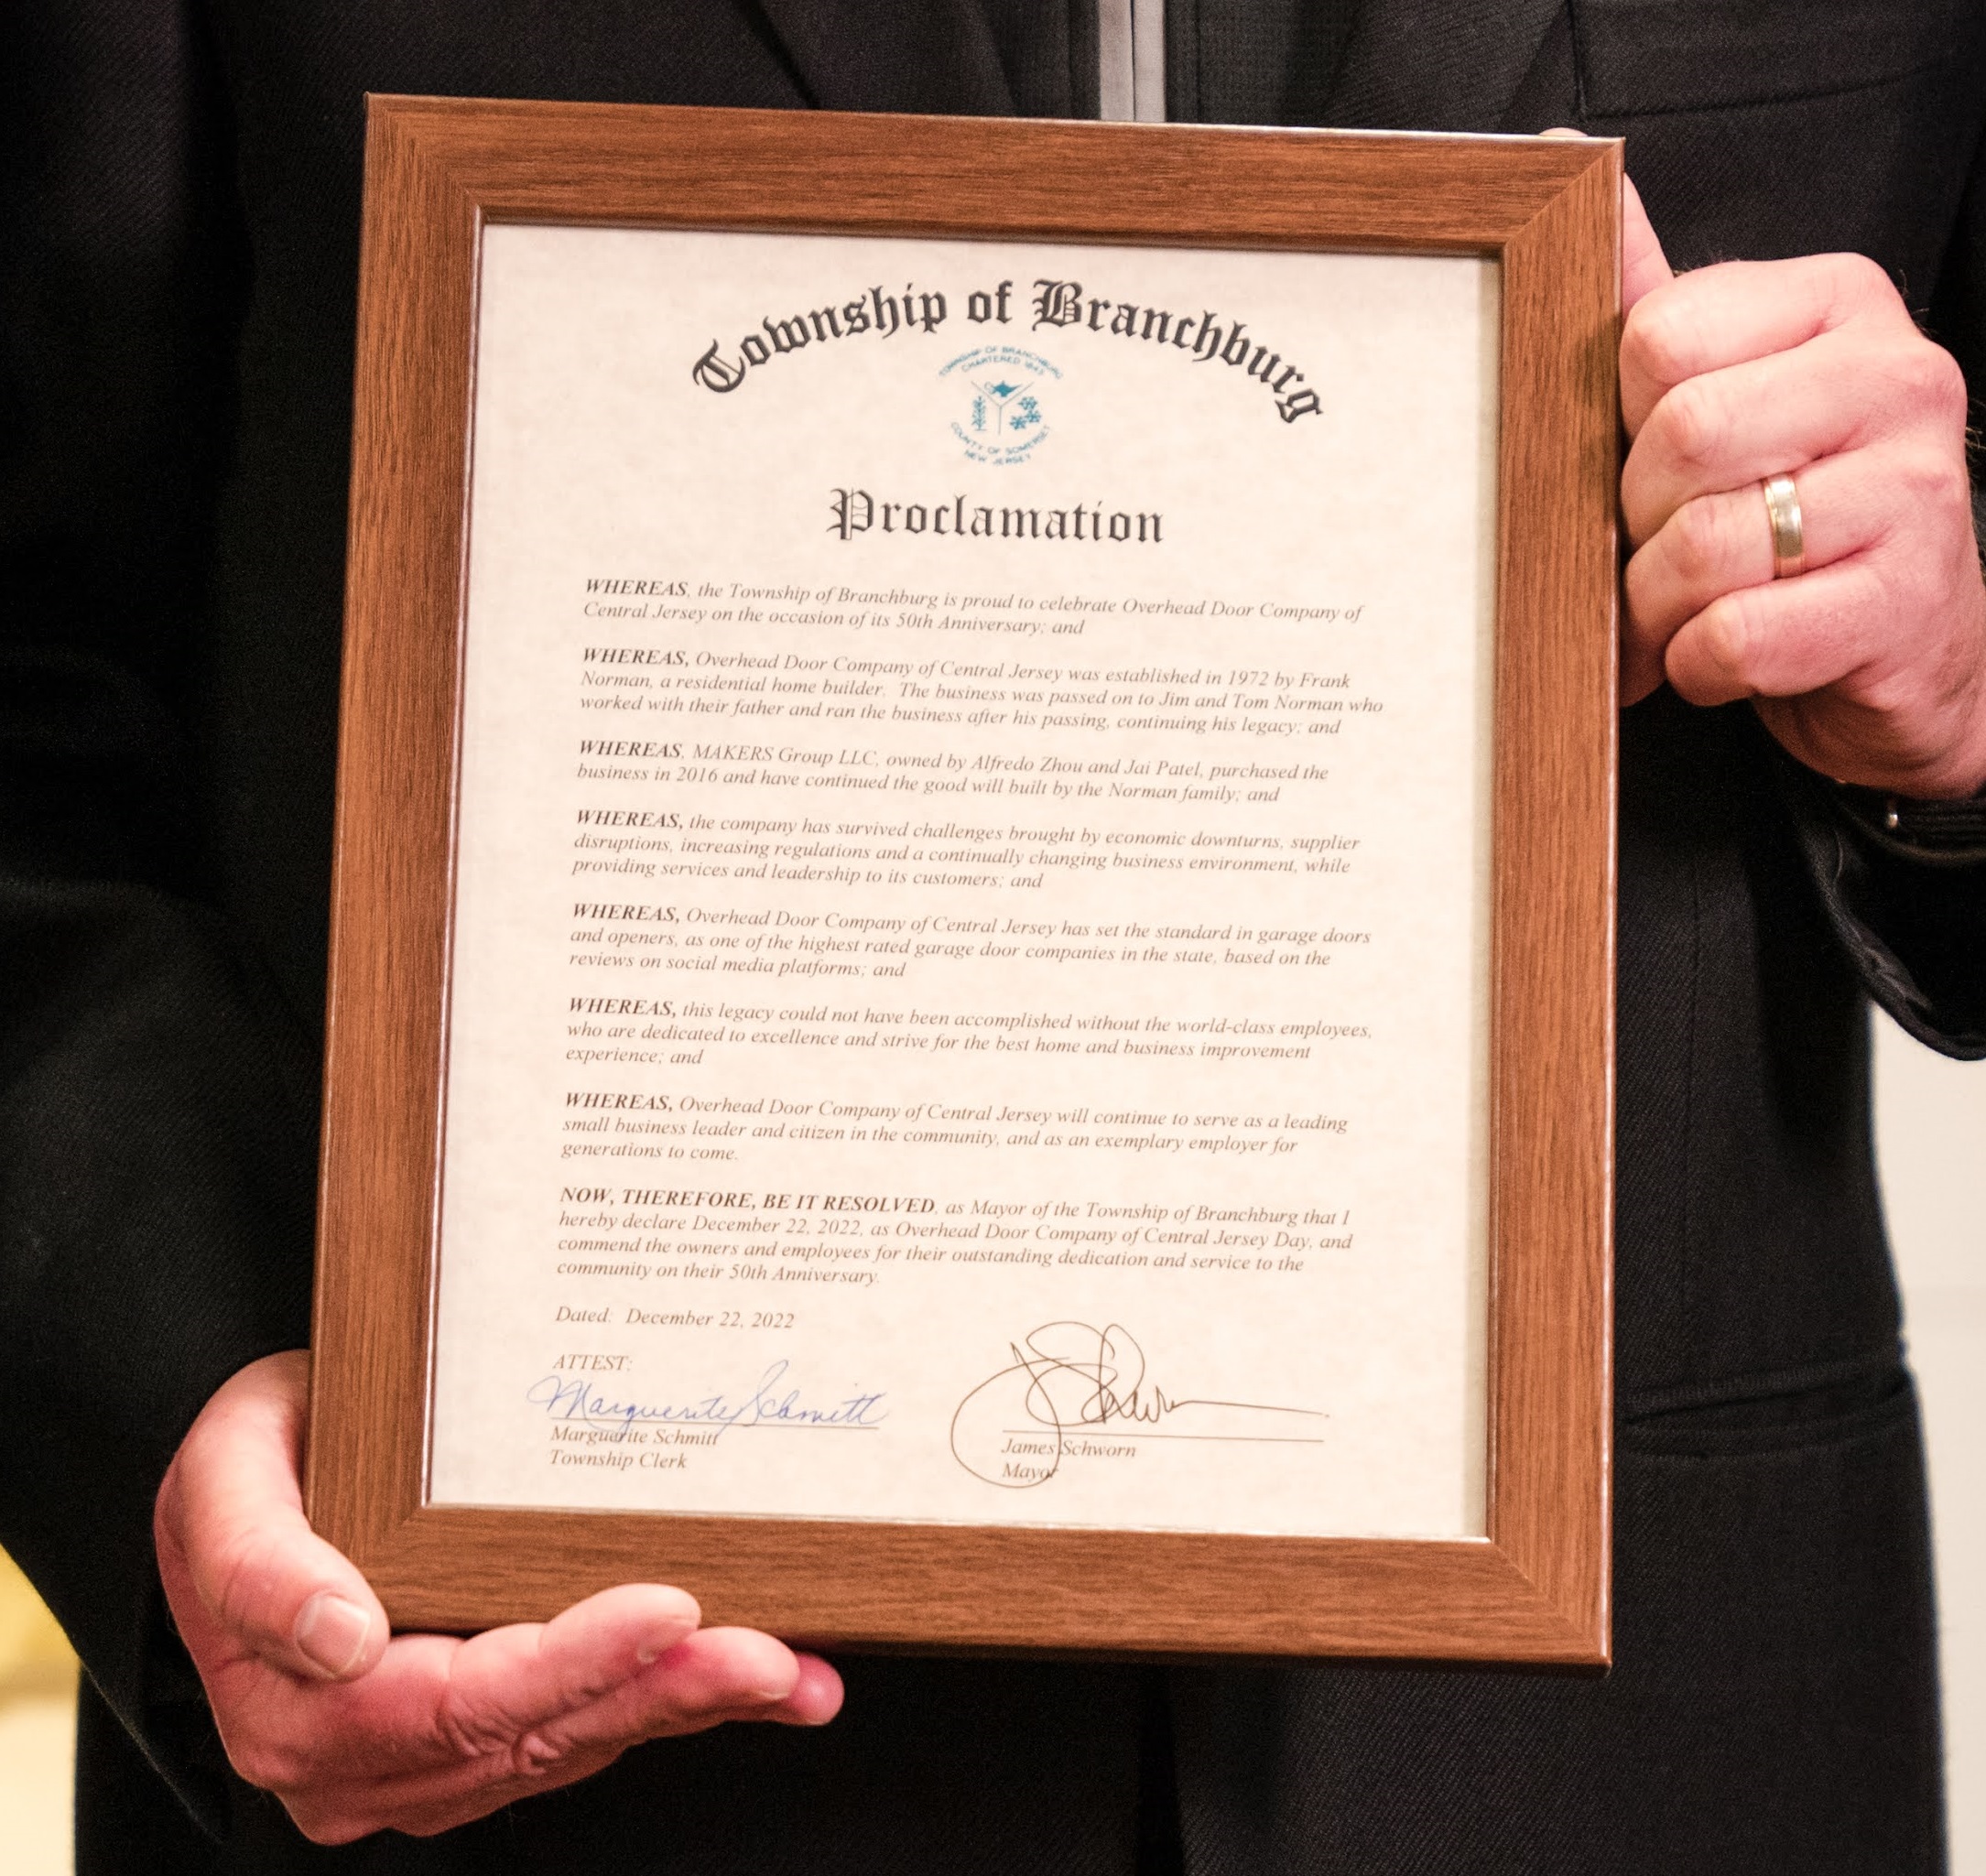 Township of Branchburg
TOWNSHIP OF BRANCHBURG
CHARTERED 1845
COUNTY OF SOMERSET
NEW JERSEY
Proclamation
WHEREAS, the Township of Branchburg is proud to celebrate Overhead Door Company of
Central Jersey on the occasion of its 50th Anniversary; and
WHEREAS, Overhead Door Company of Central Jersey was established in 1972 by Frank
Norman, a residential home builder. The business was passed on to Jim and Tom Norman who
worked with their father and ran the business after his passing, continuing his legacy; and
WHEREAS, MAKERS Group LLC, owned by Alfredo Zhou and Jai Patel, purchased the
business in 2016 and have continued the good will built by the Norman family; and
WHEREAS, the company has survived challenges brought by economic downturns, supplier
disruptions, increasing regulations and a continually changing business environment, while
providing services and leadership to its customers; and
WHEREAS, Overhead Door Company of Central Jersey has set the standard in garage doors
and openers, as one of the highest rated garage door companies in the state, based on the
reviews on social media platforms; and
WHEREAS, this legacy could not have been accomplished without the world-class employees,
who are dedicated to excellence and strive for the best home and business improvement
experience; and
WHEREAS, Overhead Door Company of Central Jersey will continue to serve as a leading
small business leader and citizen in the community, and as an exemplary employer for
generations to come.
NOW, THEREFORE, BE IT RESOLVED, as Mayor of the Township of Branchburg that I
hereby declare December 22, 2022, as Overhead Door Company of Central Jersey Day, and
commend the owners and employees for their outstanding dedication and service to the
community on their 50th Anniversary.
Dated: December 22, 2022
ATTEST:
Marguerite Schmitt
Marguerite Schmitt
Township Clerk
James Schworn
Mayor